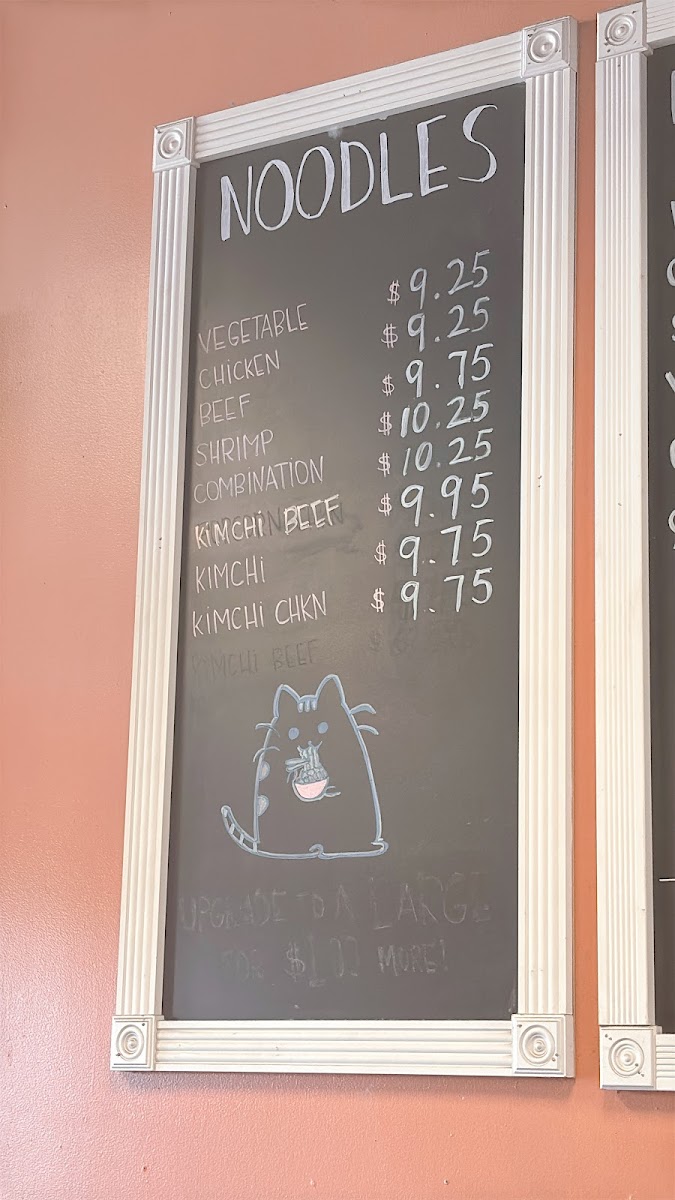 NOODLES
VEGETABLE $ 9.25
CHICKEN $ 9.25
BEEF $ 9.75
SHRIMP $ 10.25
COMBINATION $ 10.25
KIMCHI BEEF $ 9.95
KIMCHI $ 9.75
KIMCHI CHKN $ 9.75
KIMCHI BEEF
UPGRADE TO A LARGE
FOR $1.00 MORE!